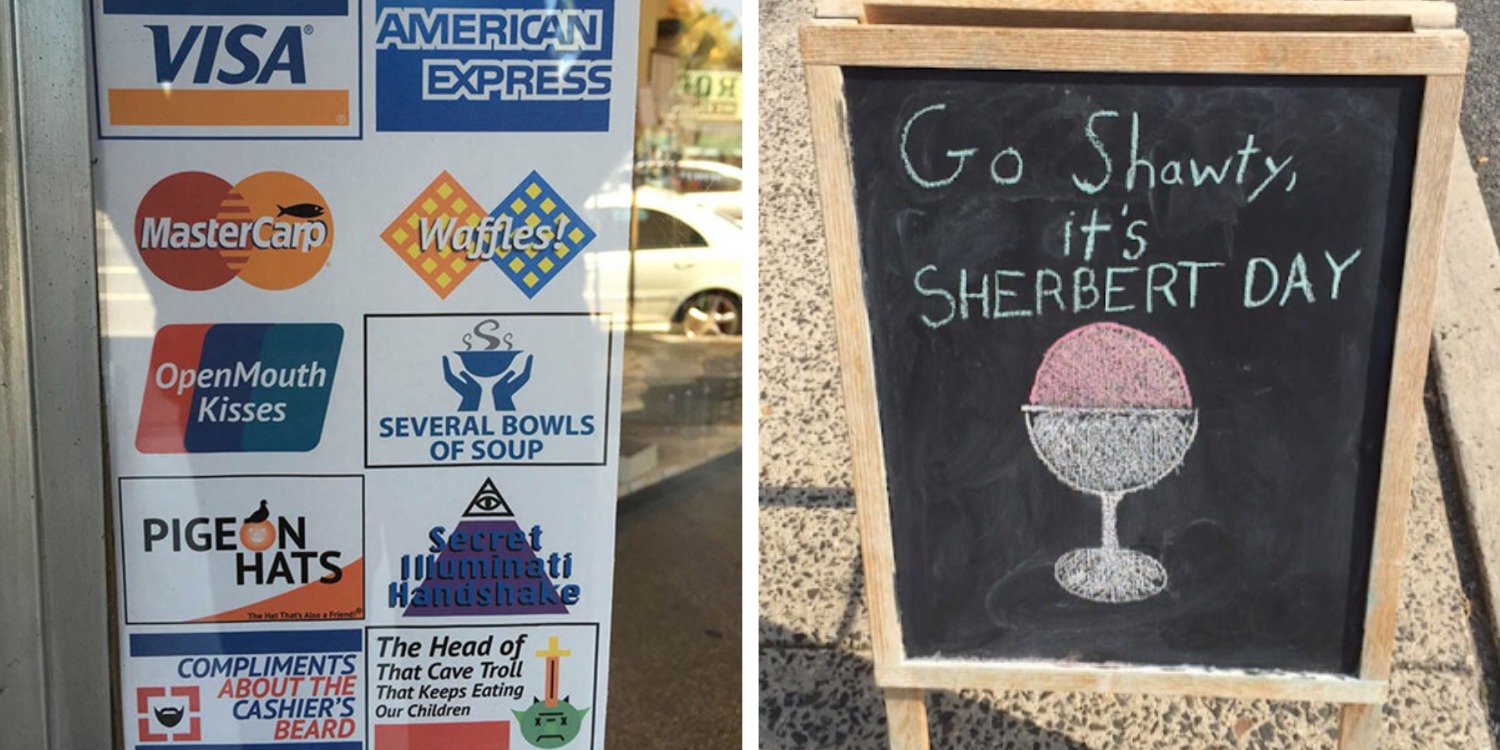 VISA
AMERICAN
EXPRESS
MasterCarp
Waffles!
OpenMouth
Kisses
SEVERAL BOWLS
OF SOUP
PIGEON
HATS
The Hat That's Also a Friend!®
Secret
Illuminati
Handshake
COMPLIMENTS
ABOUT THE
CASHIER'S
BEARD
The Head of
That Cave Troll
That Keeps Eating
Our Children
Go Shawty,
it's
SHERBERT DAY